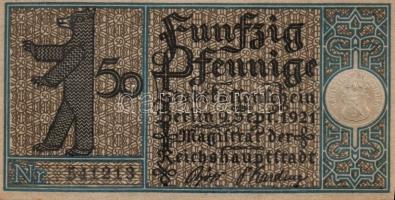 Funfzig
Pfennige
50
Stadtkassenschein
Berlin 9. Sept. 1921
Magistrat der
Reichshauptstadt
Nr. 541213